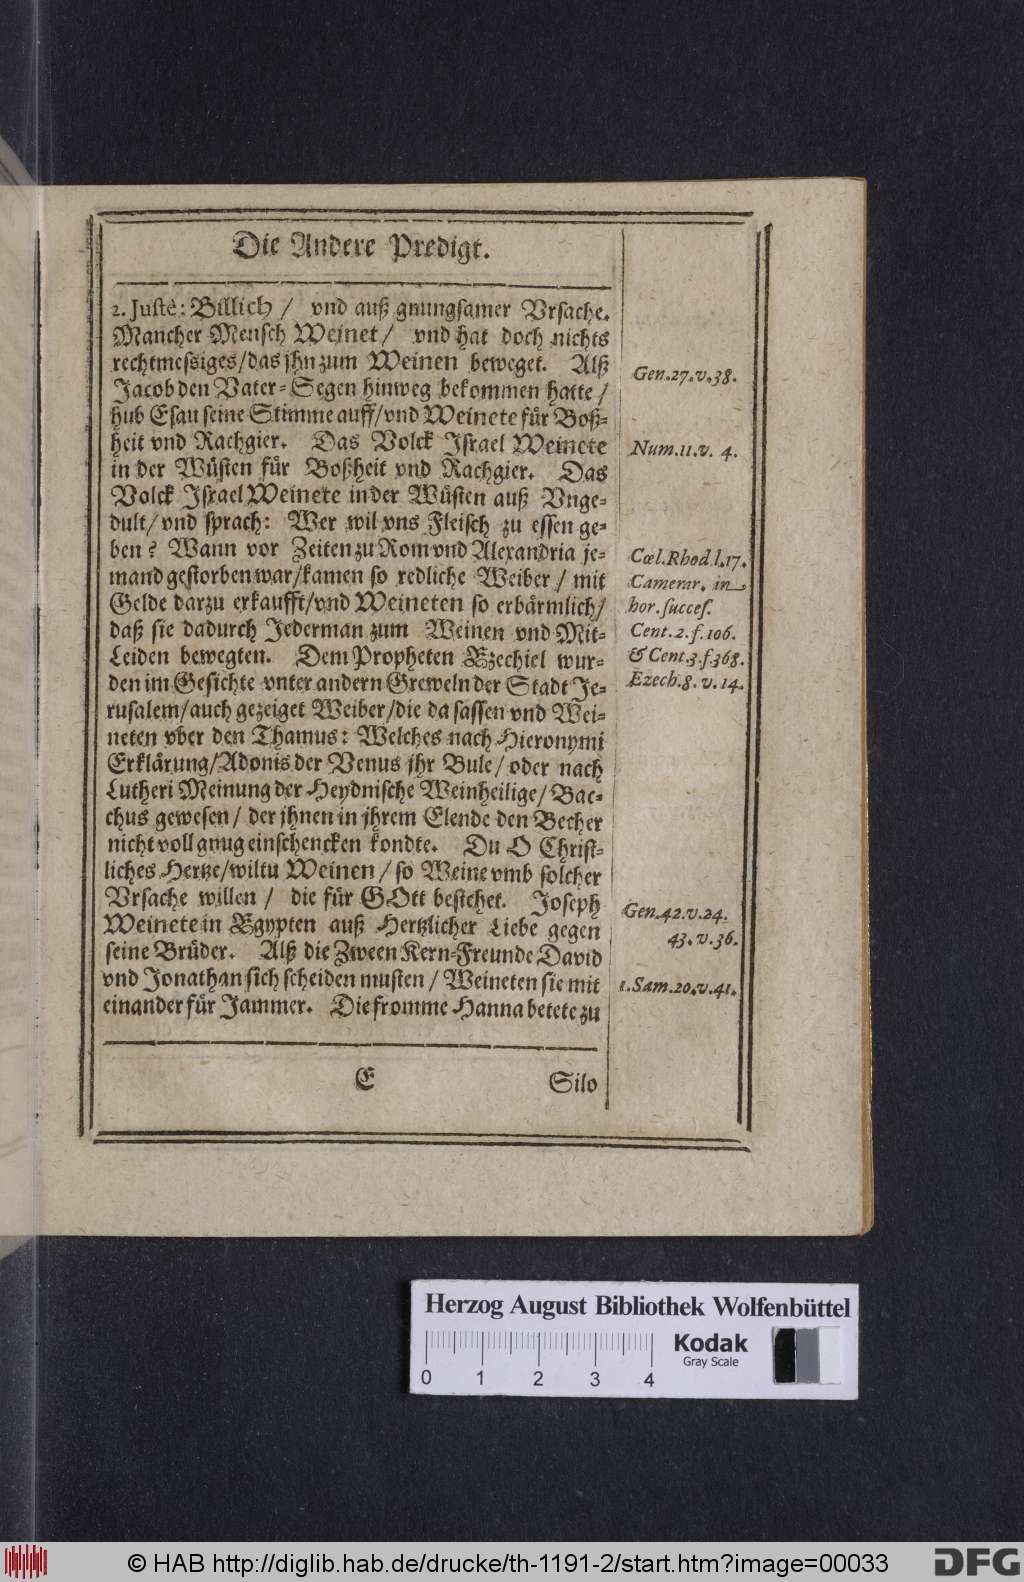 Die Andere Predigt.
2. Justè: Billich / vnd auß gnungsamer Vrsache.
Mancher Mensch Weinet / vnd hat doch nichts
rechtmessiges/das jhn zum Weinen beweget. Alß
Jacob den Vater-Segen hinweg bekommen hatte /
hub Esau seine Stimme auff/vnd Weinete für Boß-
heit vnd Rachgier. Das Volck Israel Weinete
in der Wüsten für Boßheit vnd Rachgier. Das
Volck Israel Weinete in der Wüsten auß Vnge-
dult/vnd sprach: Wer wil vns Fleisch zu essen ge-
ben? Wann vor Zeiten zu Rom vnd Alexandria je-
mand gestorben war/kamen so redliche Weiber / mit
Gelde darzu erkaufft/vnd Weineten so erbärmlich/
daß sie dadurch Jederman zum Weinen vnd Mit-
Leiden bewegten. Dem Propheten Ezechiel wur-
den im Gesichte vnter andern Greweln der Stadt Je-
rusalem/auch gezeiget Weiber/die da sassen vnd Wei-
neten vber den Thamus: Welches nach Hieronymi
Erklärung/Adonis der Venus jhr Bule/oder nach
Lutheri Meinung der Heydnische Weinheilige/Bac-
chus gewesen/ der jhnen in jhrem Elende den Becher
nicht voll gnug einschencken kondte. Du O Christ-
liches Hertze/wiltu Weinen/so Weine vmb solcher
Vrsache willen / die für GOtt bestehet. Joseph
Weinete in Egypten auß Hertzlicher Liebe gegen
seine Brüder. Alß die Zween Kern-Freunde David
vnd Jonathan sich scheiden musten / Weineten sie mit
einander für Jammer. Die fromme Hanna betete zu
E Silo
Gen. 27. v. 38.
Num. 11. v. 4.
Cœl. Rhod l. 17.
Camerar. in
hor. succes.
Cent. 2. f. 106.
& Cent. 3. f 368.
Ezech. 8. v. 14.
Gen. 42. v. 24.
43. v. 36.
1. Sam. 20. v. 41.
Herzog August Bibliothek Wolfenbüttel
0 1 2 3 4
Kodak
Gray Scale
© HAB http://diglib.hab.de/drucke/th-1191-2/start.htm?image=00033
DFG